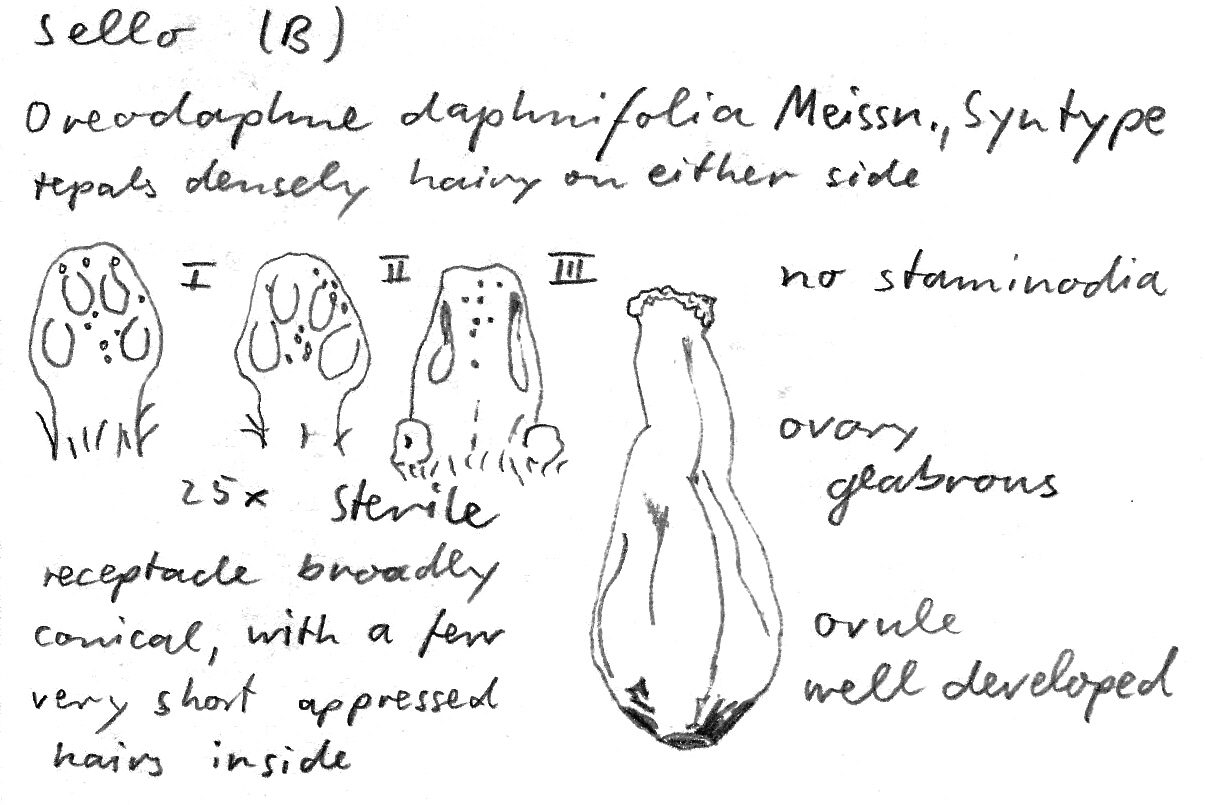 Sello (B)
Oreodaphne daphnifolia Meissn., Syntype
tepals densely hairy on either side
I II III
no staminodia
ovary
glabrous
25x sterile
receptacle broadly
conical, with a few
very short appressed
hairs inside
ovule
well developed